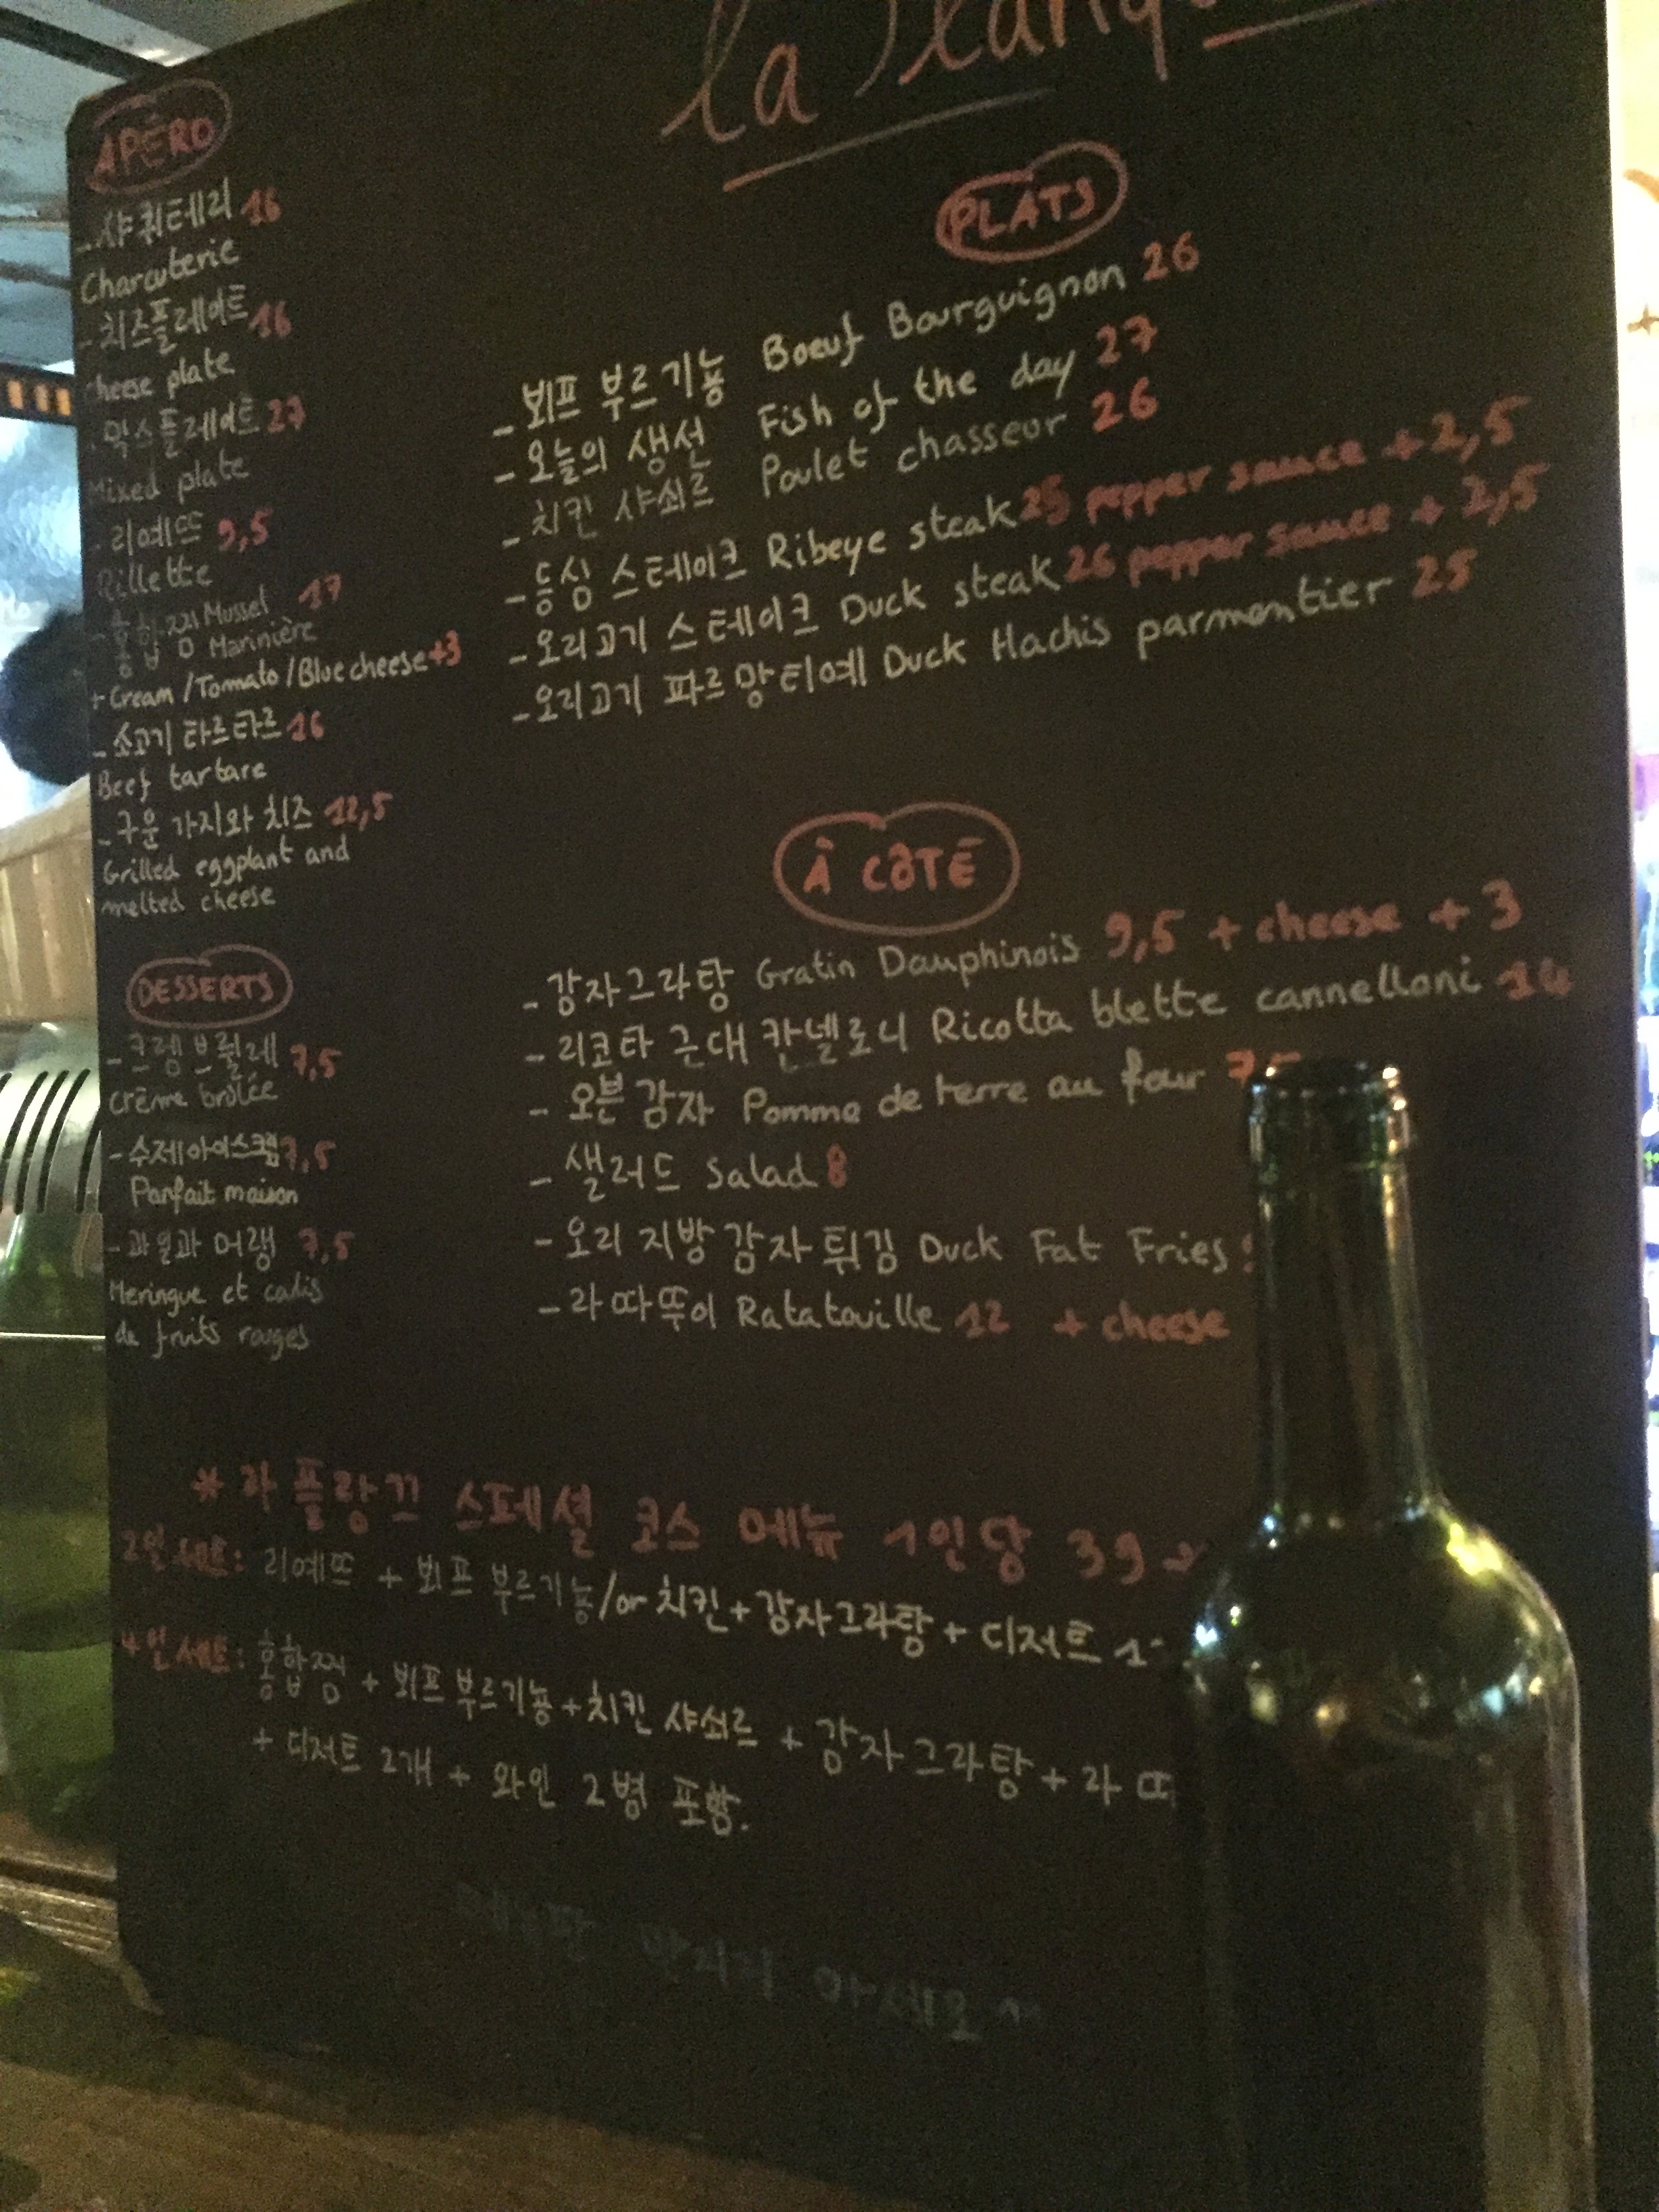 la Planq
APÉRO
-샤퀴테리 16
Charcuterie
- 치즈플레이트 16
cheese plate
- 믹스플레이트 27
Mixed plate
- 리예뜨 9,5
Rillette
- 홍합찜 Mussel 17
Marinière
+ Cream / Tomato / Blue cheese +3
- 소고기 타르타르 16
Beef tartare
- 구운 가지와 치즈 12,5
Grilled eggplant and
melted cheese
DESSERTS
- 크렘 브륄레 7,5
Crème brûlée
- 수제아이스크림 7,5
Parfait maison
- 과일과 머랭 7,5
Meringue et culis
de fruits rouges
PLATS
- 뵈프 부르기뇽 Boeuf Bourguignon 26
- 오늘의 생선 Fish of the day 27
- 치킨 샤쇠르 Poulet chasseur 26
- 등심 스테이크 Ribeye steak pepper sauce + 2,5
- 오리고기 스테이크 Duck steak 26 pepper sauce + 2,5
- 오리고기 파르망티에 Duck Hachis parmentier 25
À CÔTÉ
- 감자그라탕 Gratin Dauphinois 9,5 + cheese + 3
- 리코타 근대 칸넬로니 Ricotta blette cannelloni 14
- 오븐 감자 Pomme de terre au four
- 샐러드 Salad 8
- 오리 지방 감자 튀김 Duck Fat Fries
- 라따뚜이 Ratatouille 12 + cheese
* 라 플랑끄 스페셜 코스 메뉴 1인당 39
2인 세트: 리예뜨 + 뵈프 부르기뇽/or 치킨 + 감자그라탕 + 디저트 1
4인 세트: 홍합찜 + 뵈프 부르기뇽 + 치킨 샤쇠르 + 감자그라탕 + 라따
+ 디저트 2개 + 와인 2병 포함.
메뉴판 만지지 마세요